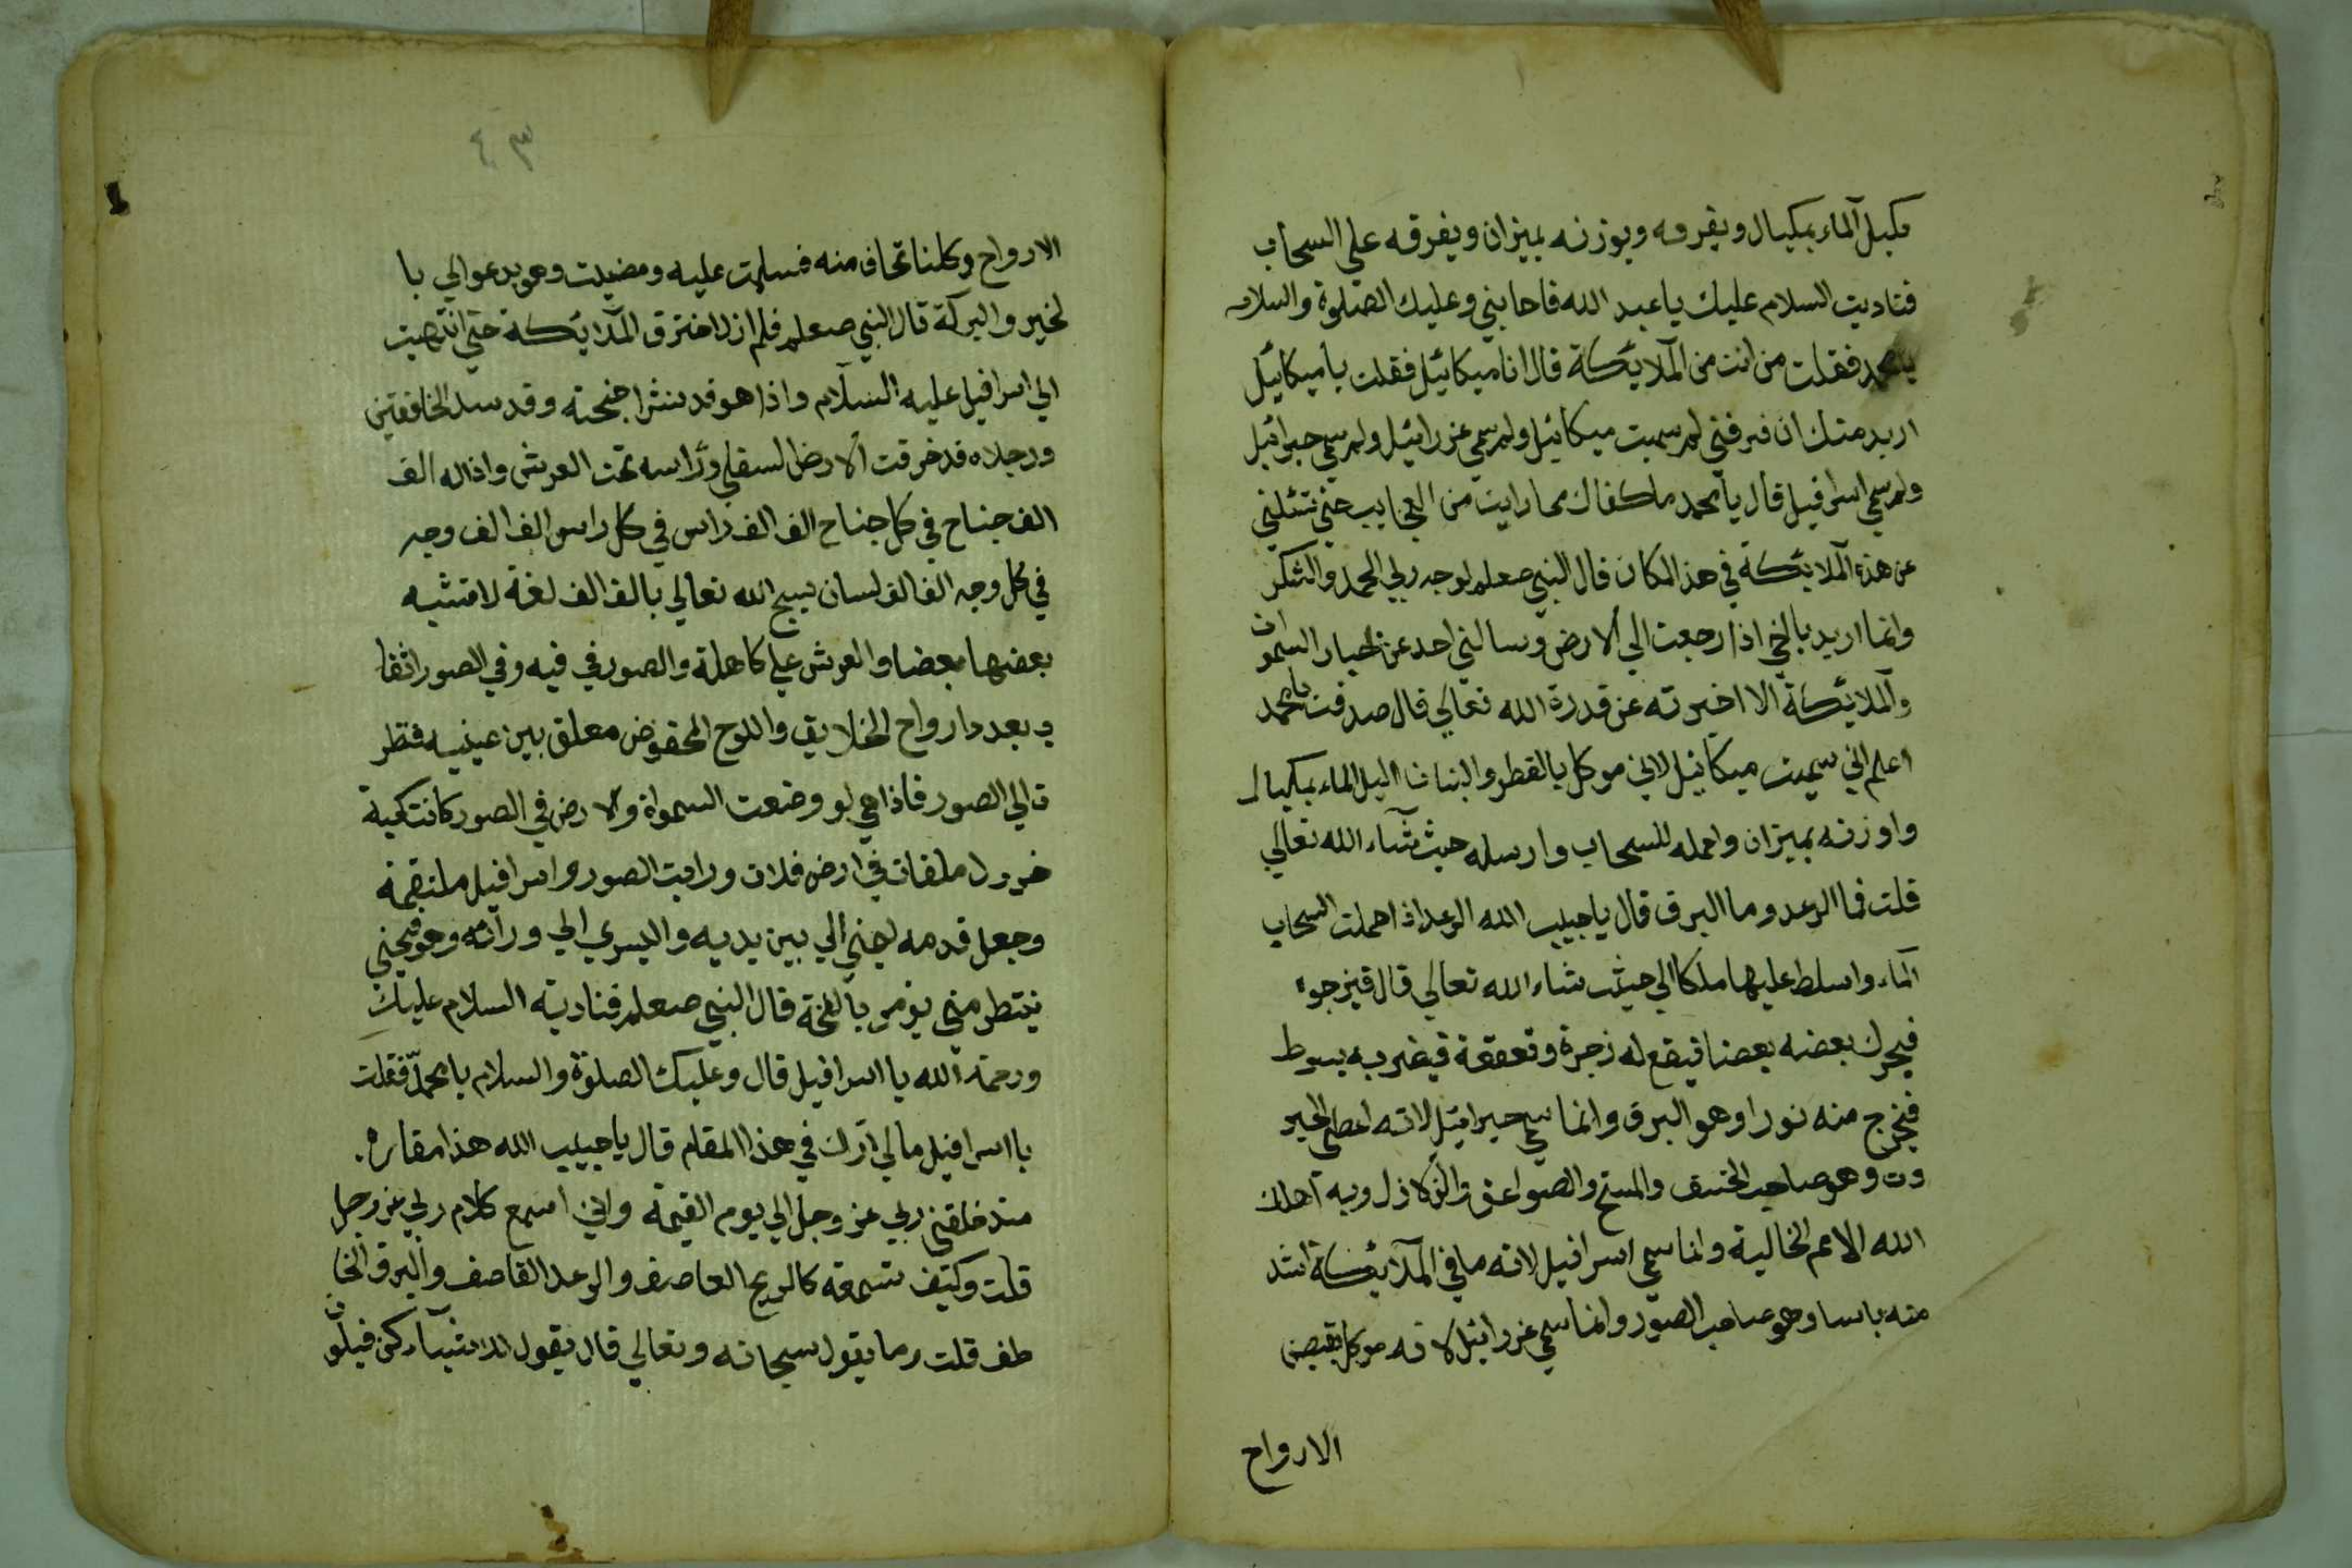 مكيل آلماء بمكيال ويفرقه ويوزنه بميزان ويفرقه على السحاب
فناديت السلام عليك يا عبد الله فاجابني وعليك الصلوة والسلام
يا محمد فقلت من انت من الملايكة قال انا ميكائيل فقلت يا ميكائيل
اريد منك ان فرفني لم سميت ميكائيل ولم سمي عزرائيل ولم سمي جبرائيل
ولم سمي اسرافيل قال يا محمد ما كفاك مما رايت من العجايب حتى تسئلني
عن هذه الملايكة في هذ المكان قال النبي صعلم لوجه ربي الحمد والشكر
وانما اريد يا اخي اذا رجعت الي الارض وسالني احد عن اخبار السموات
والملايكة الا اخبرته عن قدرة الله تعالي قال صدقت يا محمد
اعلم اني سميت ميكائيل لاني موكل بالقطر والنبات اكيل الماء بمكيال
واوزنه بميزان واحمله للسحاب وارسله حيث شاء الله تعالي
قلت فما الرعد وما البرق قال يا حبيب الله الرعد اذا حملت السحاب
الماء واسلط عليها ملكا الي حيث شاء الله تعالي قال فيزجره
فيحرك بعضه بعضا فيقع له زجرة وقعقعة فيضربه بسوط
فيخرج منه نورا وهو البرق وانما سمي جبرائيل لانه اعطي الجبر
وت وهو صاحب الخسف والمسخ والصواعق والزلازل وبه اهلك
الله الامم الخالية وانما سمي اسرافيل لانه ما في الملايكة اشد
منه باسا وهو صاحب الصور وانما سمي عزرائيل لانه موكل بقبض
الارواح
٤٣
الارواح وكلنا نخاف منه فسلمت عليه ومضيت وهو يدعوالي با
لخير والبركة قال النبي صعلم فلم ازل اخترق الملايكة حتي انتهيت
الي اسرافيل عليه السلام واذا هو قد نشر اجنحته وقد سد الخافقين
ورجلاه قد خرقت الارض السفلي وراسه تحت العرش واذا له الف
الف جناح في كل جناح الف الف راس في كل راس الف الف وجه
في كل وجه الف الف لسان يسبح الله تعالي بالف الف لغة لا تشبه
بعضها بعضا والعرش علي كاهله والصور في فيه وفي الصور اثقا
ب بعدد ارواح الخلايق واللوح المحفوض معلق بين عينيه فنظر
ت الي الصور فاذا هي لو وضعت السمواة والارض في الصور كانت كحبة
خردل ملقات في ارض فلات ورايت الصور واسرافيل ملتقمه
وجعل قدمه ليمني الي بين يديه واليسري الي ورائه وهو منحني
ينتطر متي يؤمر بالنفخة قال النبي صعلم فناديته السلام عليك
ورحمة الله يا اسرافيل قال وعليك الصلوة والسلام يا محمد فقلت
يا اسرافيل مالي اراك في هذا المقام قال يا حبيب الله هذا مقاره
منذ خلقني ربي عز وجل الي يوم القيمة واني اسمع كلام ربي عز وجل
قلت وكيف تسمعه كالريح العاصف والرعد القاصف والبرق الخا
طف قلت وما يقول سبحانه وتعالي قال يقول للاشياء كن فيكون